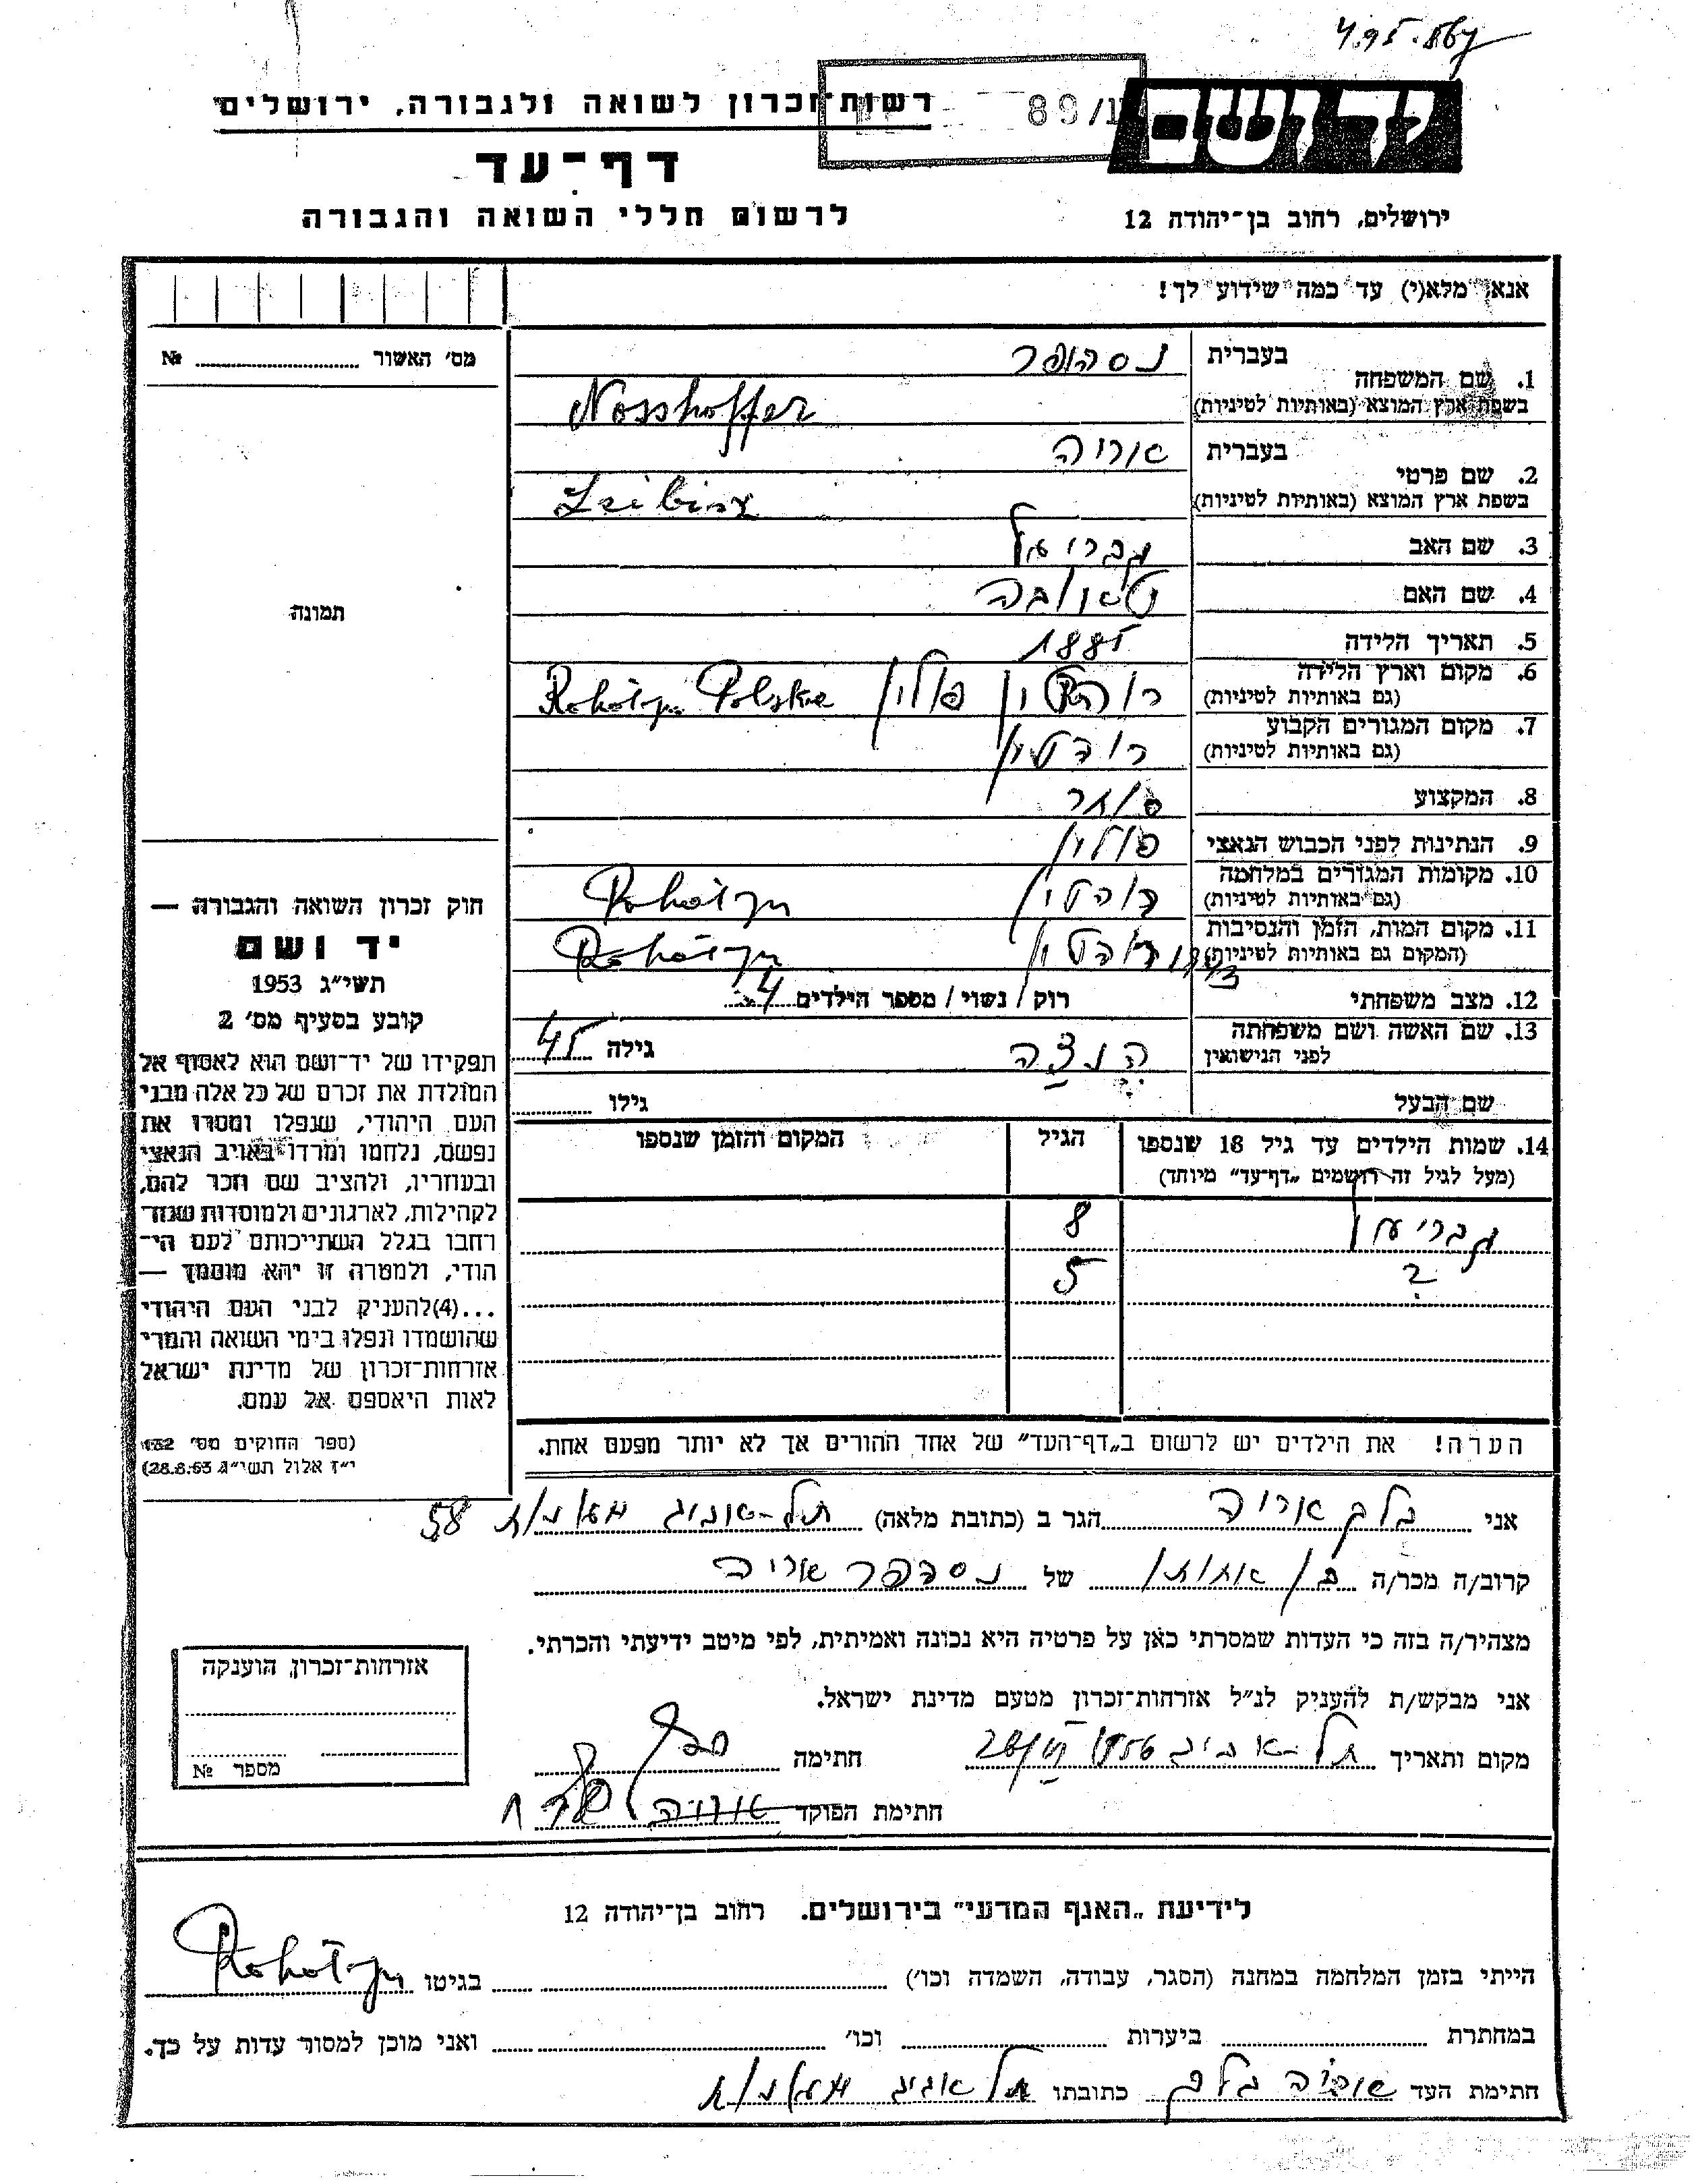 רשות־זכרון לשואה ולגבורה, ירושלים
89/1
יד ושם
דף־עד
לרשום חללי השואה והגבורה
ירושלים, רחוב בן־יהודה 12
אנא, מלא(י) עד כמה שידוע לך!
מס' האשור № 
1. שם המשפחה בעברית נסהופר
בשפת ארץ המוצא (באותיות לטיניות) Nosshoffer
2. שם פרטי בעברית אריה
בשפת ארץ המוצא (באותיות לטיניות)
3. שם האב גבריאל
4. שם האם טאובה
5. תאריך הלידה 1885
6. מקום וארץ הלידה רוהטין פולין Rohatyn Polska
(גם באותיות לטיניות)
7. מקום המגורים הקבוע רוהטין
(גם באותיות לטיניות)
8. המקצוע סוחר
9. הנתינות לפני הכבוש הנאצי פולין
10. מקומות המגורים במלחמה רוהטין Rohatyn
(גם באותיות לטיניות)
11. מקום המות, הזמן והנסיבות רוהטין Rohatyn
(המקום גם באותיות לטיניות)
12. מצב משפחתי רוק / נשוי / מספר הילדים 4
13. שם האשה ושם משפחתה לפני הנישואין גילה 45
שם הבעל גילו
14. שמות הילדים עד גיל 18 שנספו הגיל המקום והזמן שנספו
(מעל לגיל זה רושמים „דף־עד" מיוחד)
8
? 5
הערה! את הילדים יש לרשום ב„דף־העד" של אחד ההורים אך לא יותר מפעם אחת.
תמונה
חוק זכרון השואה והגבורה —
יד ושם
תשי״ג 1953
קובע בסעיף מס' 2
תפקידו של יד־ושם הוא לאסוף אל
המולדת את זכרם של כל אלה מבני
העם היהודי, שנפלו ומסרו את
נפשם, נלחמו ומרדו באויב הנאצי
ובעוזריו, ולהציב שם וזכר להם,
לקהילות, לארגונים ולמוסדות שנח־
רבו בגלל השתייכותם לעם הי־
הודי, ולמטרה זו יהא מוסמך —
...(4) להעניק לבני העם היהודי
שהושמדו ונפלו בימי השואה והמרי
אזרחות־זכרון של מדינת ישראל
לאות היאספם אל עמם.
(ספר החוקים מס' 132
י״ז אלול תשי״ג 28.8.53)
אני אריה הגר ב (כתובת מלאה) תל-אביב 58
קרוב/ה מכר/ה בן אחותו של נסהפר אריה
מצהיר/ה בזה כי העדות שמסרתי כאן על פרטיה היא נכונה ואמיתית, לפי מיטב ידיעתי והכרתי.
אני מבקש/ת להעניק לנ״ל אזרחות־זכרון מטעם מדינת ישראל.
מקום ותאריך תל-אביב חתימה
חתימת הפוקד
אזרחות־זכרון הוענקה
מספר №
לידיעת „האגף המדעי" בירושלים. רחוב בן־יהודה 12
הייתי בזמן המלחמה במחנה (הסגר, עבודה, השמדה וכו') בגיטו Rohatyn
במחתרת ביערות וכו' ואני מוכן למסור עדות על כך.
חתימת העד אריה כתובתו תל אביב